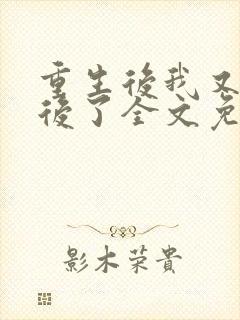 重生後我又
後了全文免
影木荣貴